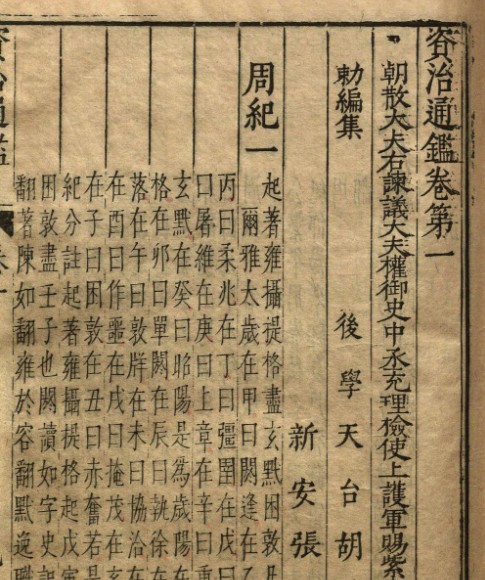 資治通鑑卷第一
朝散大夫右諫議大夫權御史中丞充理檢使上護軍賜紫
勑編集
後學天台胡
新安張
周紀一
起著雍攝提格盡玄黓困敦凡
爾雅太歲在甲曰閼逢在乙
丙曰柔兆在丁曰彊圉在戊曰
曰屠維在庚曰上章在辛曰重
玄黓在癸曰昭陽是為歲陽在
格在卯曰單閼在辰曰執徐在
落在午曰敦牂在未曰協洽在
在酉曰作噩在戌曰掩茂在亥
在子曰困敦在丑曰赤奮若是
紀分註起著雍攝提格起戊寅
困敦盡壬子也閼讀如字史記
翻著陳如翻雍於容翻黓逸職
資治通鑑